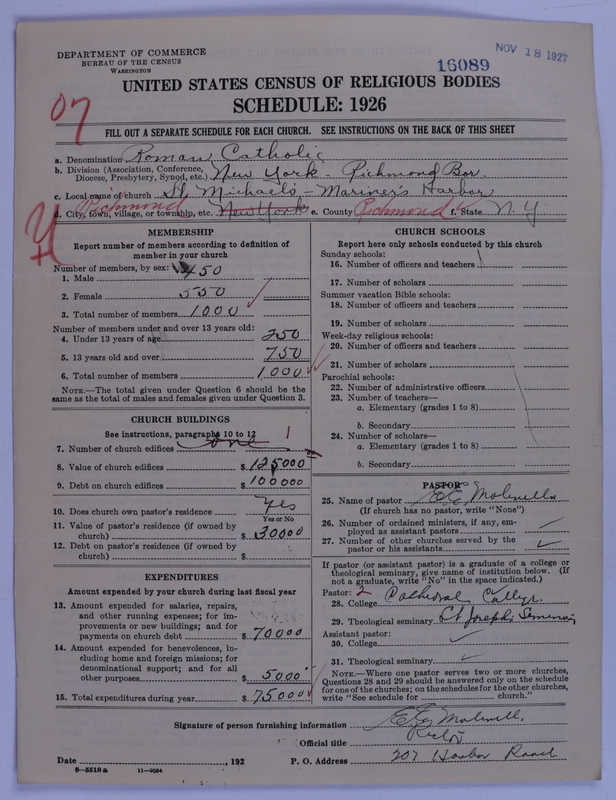 DEPARTMENT OF COMMERCE
BUREAU OF THE CENSUS
WASHINGTON
16089
NOV 18 1927
UNITED STATES CENSUS OF RELIGIOUS BODIES
SCHEDULE: 1926
07
FILL OUT A SEPARATE SCHEDULE FOR EACH CHURCH. SEE INSTRUCTIONS ON THE BACK OF THIS SHEET
a. Denomination Roman Catholic
b. Division (Association, Conference, Diocese, Presbytery, Synod, etc.) New York - Richmond Bor.
c. Local name of church St Michaels - Mariner's Harbor
Richmond
d. City, town, village, or township, etc. New York e. County Richmond f. State N. Y
MEMBERSHIP
Report number of members according to definition of
member in your church
Number of members, by sex:
1. Male 450
2. Female 550
3. Total number of members 1000
Number of members under and over 13 years old:
4. Under 13 years of age 250
5. 13 years old and over 750
6. Total number of members 1000
NOTE.—The total given under Question 6 should be
same as the total of males and females given under Question 3.
CHURCH BUILDINGS
See instructions, paragraphs 10 to 12
7. Number of church edifices one 1
8. Value of church edifices $ 125000
9. Debt on church edifices $ 100000
10. Does church own pastor's residence Yes
Yes or No
11. Value of pastor's residence (if owned by
church) $ 30000
12. Debt on pastor's residence (if owned by
church) $
EXPENDITURES
Amount expended by your church during last fiscal year
13. Amount expended for salaries, repairs,
and other running expenses; for im-
provements or new buildings; and for
payments on church debt $ 70000
14. Amount expended for benevolences, in-
cluding home and foreign missions; for
denominational support; and for all
other purposes $ 5000
15. Total expenditures during year $ 75000
CHURCH SCHOOLS
Report here only schools conducted by this church
Sunday schools:
16. Number of officers and teachers
17. Number of scholars
Summer vacation Bible schools:
18. Number of officers and teachers
19. Number of scholars
Week-day religious schools:
20. Number of officers and teachers
21. Number of scholars
Parochial schools:
22. Number of administrative officers
23. Number of teachers—
a. Elementary (grades 1 to 8)
b. Secondary
24. Number of scholars—
a. Elementary (grades 1 to 8)
b. Secondary
PASTOR
25. Name of pastor
(If church has no pastor, write "None")
26. Number of ordained ministers, if any, em-
ployed as assistant pastors
27. Number of other churches served by the
pastor or his assistants
If pastor (or assistant pastor) is a graduate of a college or
theological seminary, give name of institution below. (If
not a graduate, write "No" in the space indicated.)
Pastor: 2
28. College Cathedral College
29. Theological seminary St Josephs Seminary
Assistant pastor:
30. College
31. Theological seminary
NOTE.—Where one pastor serves two or more churches,
Questions 28 and 29 should be answered only on the schedule
for one of the churches; on the schedules for the other churches,
write "See schedule for church."
Signature of person furnishing information
Official title Rector
Date , 192 P. O. Address 207 Harbor Road
8-5518 a 11-9054